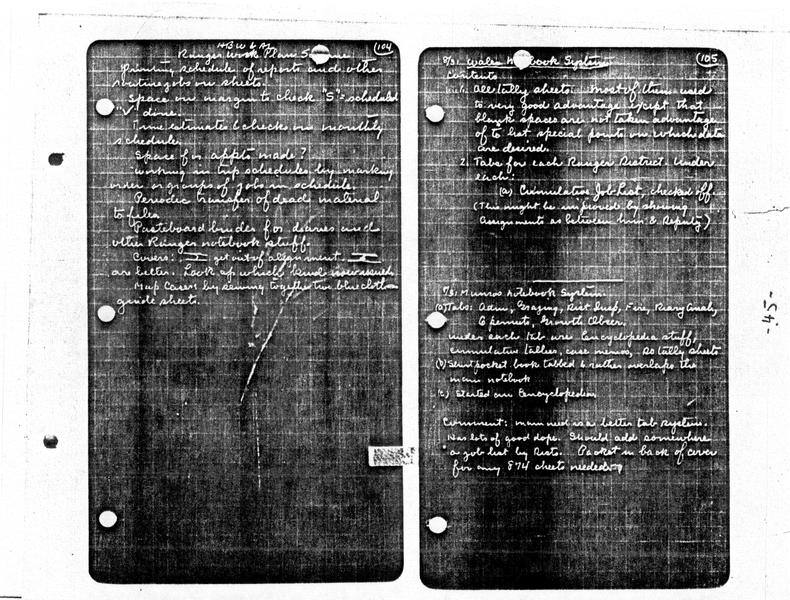 HBW & AL
(104)
Ranger Work Plans
Printing schedule of reports and other
routine jobs on sheets.
Space on margin to check "S" = scheduled
"V" done.
Time estimates & checks on monthly
schedule.
Space for appts made?
Working in trip schedules by marking
order or groups of jobs in schedule.
Periodic transfer of dead material
to files
Pasteboard binder for diaries and
other Ranger notebook stuff.
Covers. get out of alignment.
are better. Look up which kind
Map Cases by sewing together two blue cloth
guide sheets.
(105)
Wales Notebook System
Contents
All tally sheets. Most of them used
to very good advantage except that
blank spaces are not taken advantage
of to list special points on which data
are desired.
2. Tabs for each Ranger District. Under
each:
(a) Cumulative Job List, checked off.
(This might be improved by showing
assignments as between him & Deputy)
7/31 Munros Notebook System
(a) Tabs: Adm, Grazing, Dist. Insp, Fire, Diary Analy,
G permits, Growth Obser.
under each tab are Encyclopedia stuff,
cumulative tallies, case memos, So tally sheets
(b) Shirt pocket book tabbed & rather overlaps the
main notebook
(c) Started an Encyclopedia
Comment: main need is a better tab system.
Has lots of good dope. Should add somewhere
a job list by Dists. Packet in back of cover
for any 874 sheets needed.
-45-